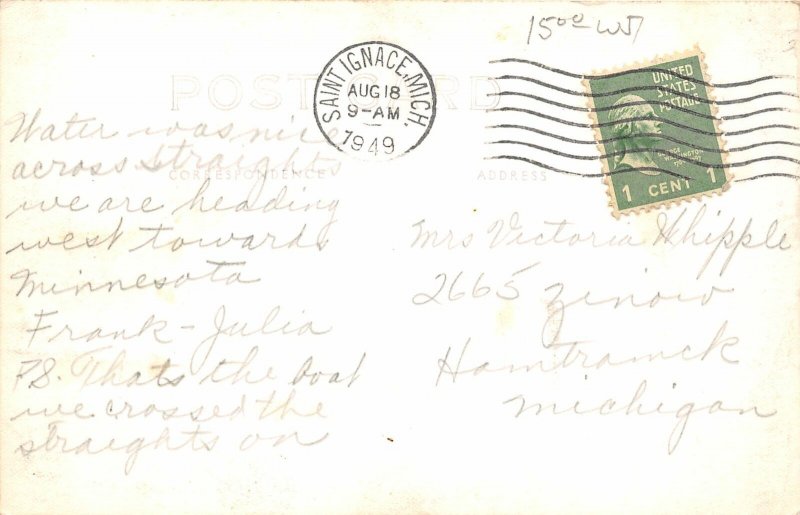 15.00 WT
POST CARD
SAINT IGNACE, MICH.
AUG 18
9-AM
1949
UNITED
STATES
POSTAGE
GEORGE
WASHINGTON
1 CENT 1
CORRESPONDENCE
ADDRESS
Water was nice
across straights
we are heading
west towards
Minnesota
Frank - Julia
P.S. Thats the boat
we crossed the
straights on
Mrs Victoria Whipple
2665 Zinow
Hamtramck
Michigan